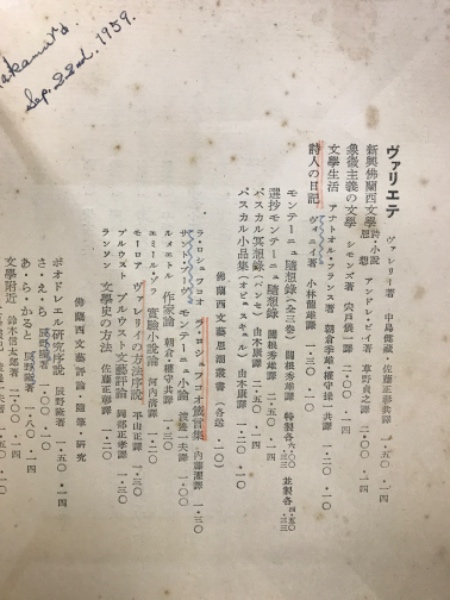 Sep. 22nd. 1959.
ヴァリエテ ヴァレリー著 中島健蔵・佐藤正彰共譯 一・五〇 ・一四
新興佛蘭西文學 詩・小說 思想 アンドレ・ビイ著 草野貞之譯 二・〇〇 ・一四
象徴主義の文學 シモンズ著 宍戸儀一譯 二・〇〇 ・一四
文學生活 アナトオル・フランス著 朝倉季雄・權守操一共譯 一・二〇 ・一〇
詩人の日記 ヴィニイ著 小林龍雄譯 一・三〇 ・一〇
モンテーニュ隨想錄(全三卷) 關根秀雄譯 特製各 並製各
選抄モンテーニュ隨想錄 關根秀雄譯 二・五〇 ・一四
パスカル冥想錄(パンセ) 由木康譯 二・五〇 ・一四
パスカル小品集(オピュスキュル) 由木康譯 一・二〇 ・一〇
佛蘭西文藝思潮叢書(各送 ・一〇)
ラ・ロシュフコオ ラ・ロシュフコオ箴言錄 内藤濯譯 一・三〇
サント・ブーヴ モンテーニュ小論 渡邊一夫譯 一・〇〇
ルメエトル 作家論 朝倉・權守共譯 一・三〇
エミール・ゾラ 實驗小說論 河内清譯 一・二〇
モーロア ヴァレリイの方法序說 平山正譯 一・二〇
プルウスト プルウスト文藝評論 岡部正孝譯 一・三〇
ランソン 文學史の方法 佐藤正彰譯 一・三〇
佛蘭西文藝評論・隨筆・研究
ボオドレエル研究序說 辰野隆著 一・五〇 ・一四
さ・え・ら 辰野隆著 一・〇〇 ・一〇
あ・ら・かると 辰野隆著 一・八〇 ・一四
文學附近 鈴木信太郎著 二・〇〇 ・一四